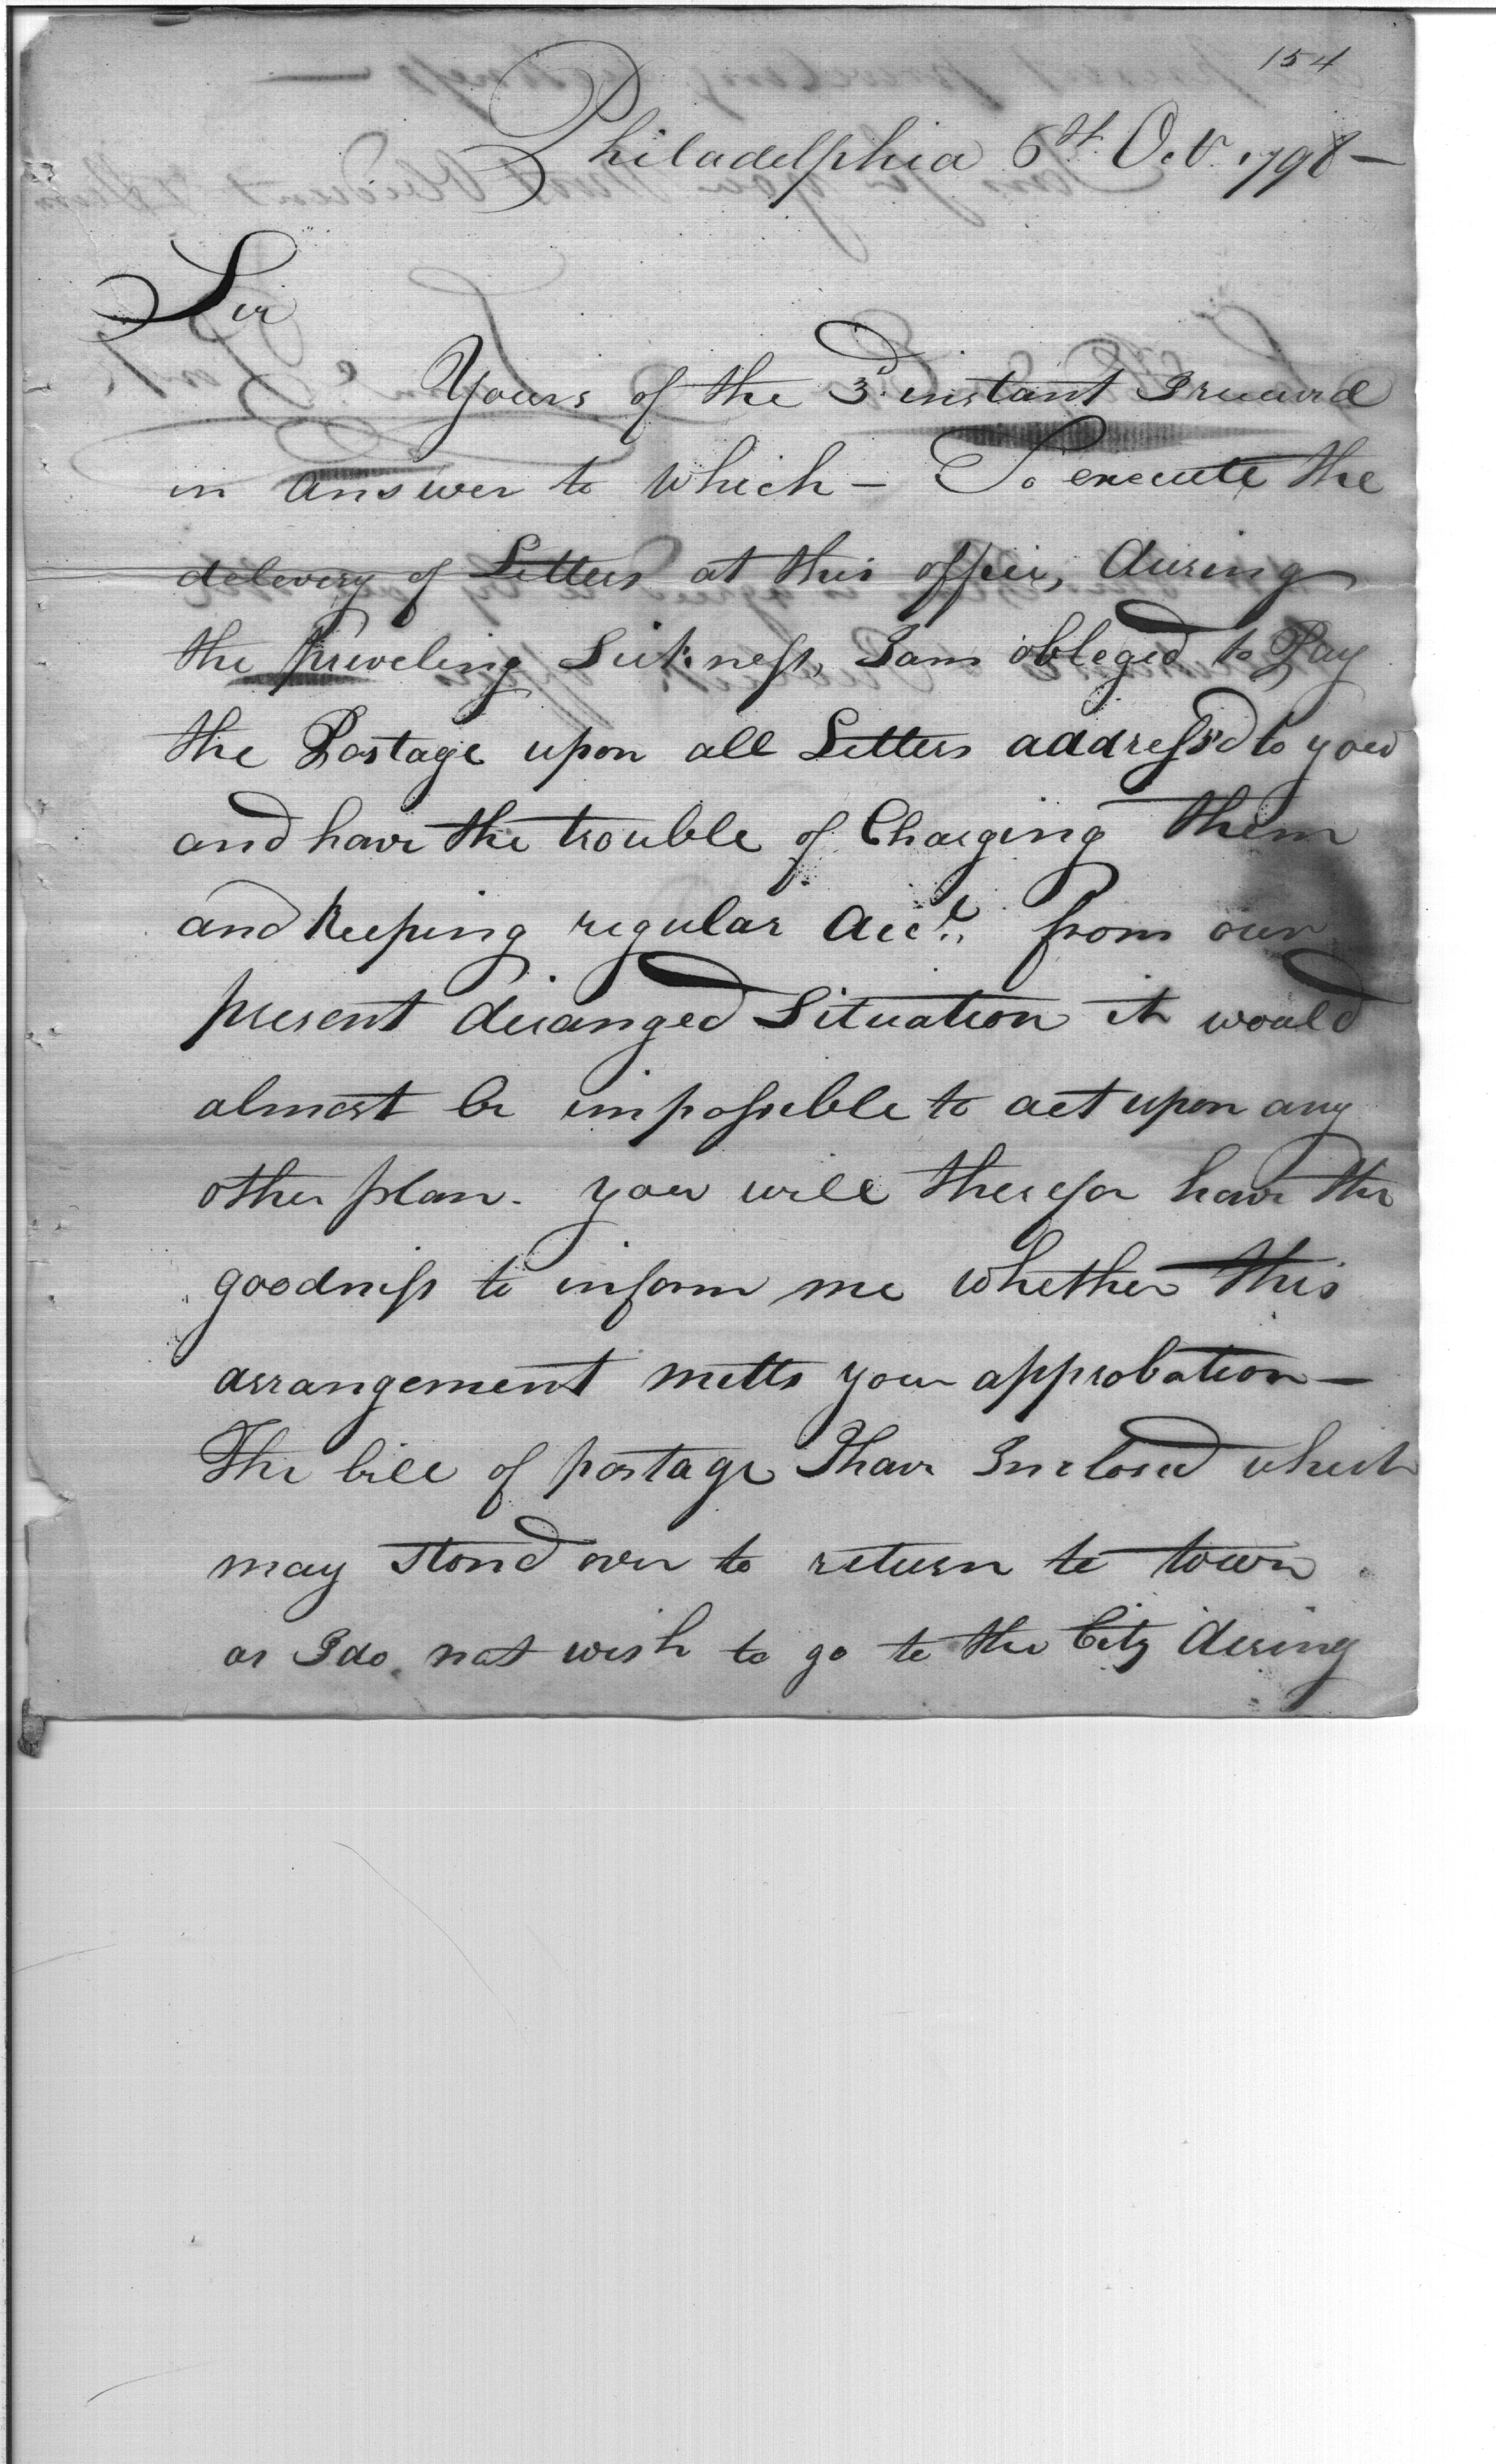 154
Philadelphia 6th. Oct. 1798 —
Sir
Yours of the 3d. instant I received
in answer to which — To execute the
delevery of Letters at this office, during
the preveling Sickness, I am obleged to Pay
the Postage upon all Letters address'd to you
and have the trouble of Charging them
and Keeping regular Acct. from our
present deranged Situation it would
almost be impossible to act upon any
other plan. you will therefor have the
goodness to inform me whether this
arrangement metts your approbation —
The bill of postage I have Inclosed which
may stand over to return to town
as I do not wish to go to the City during